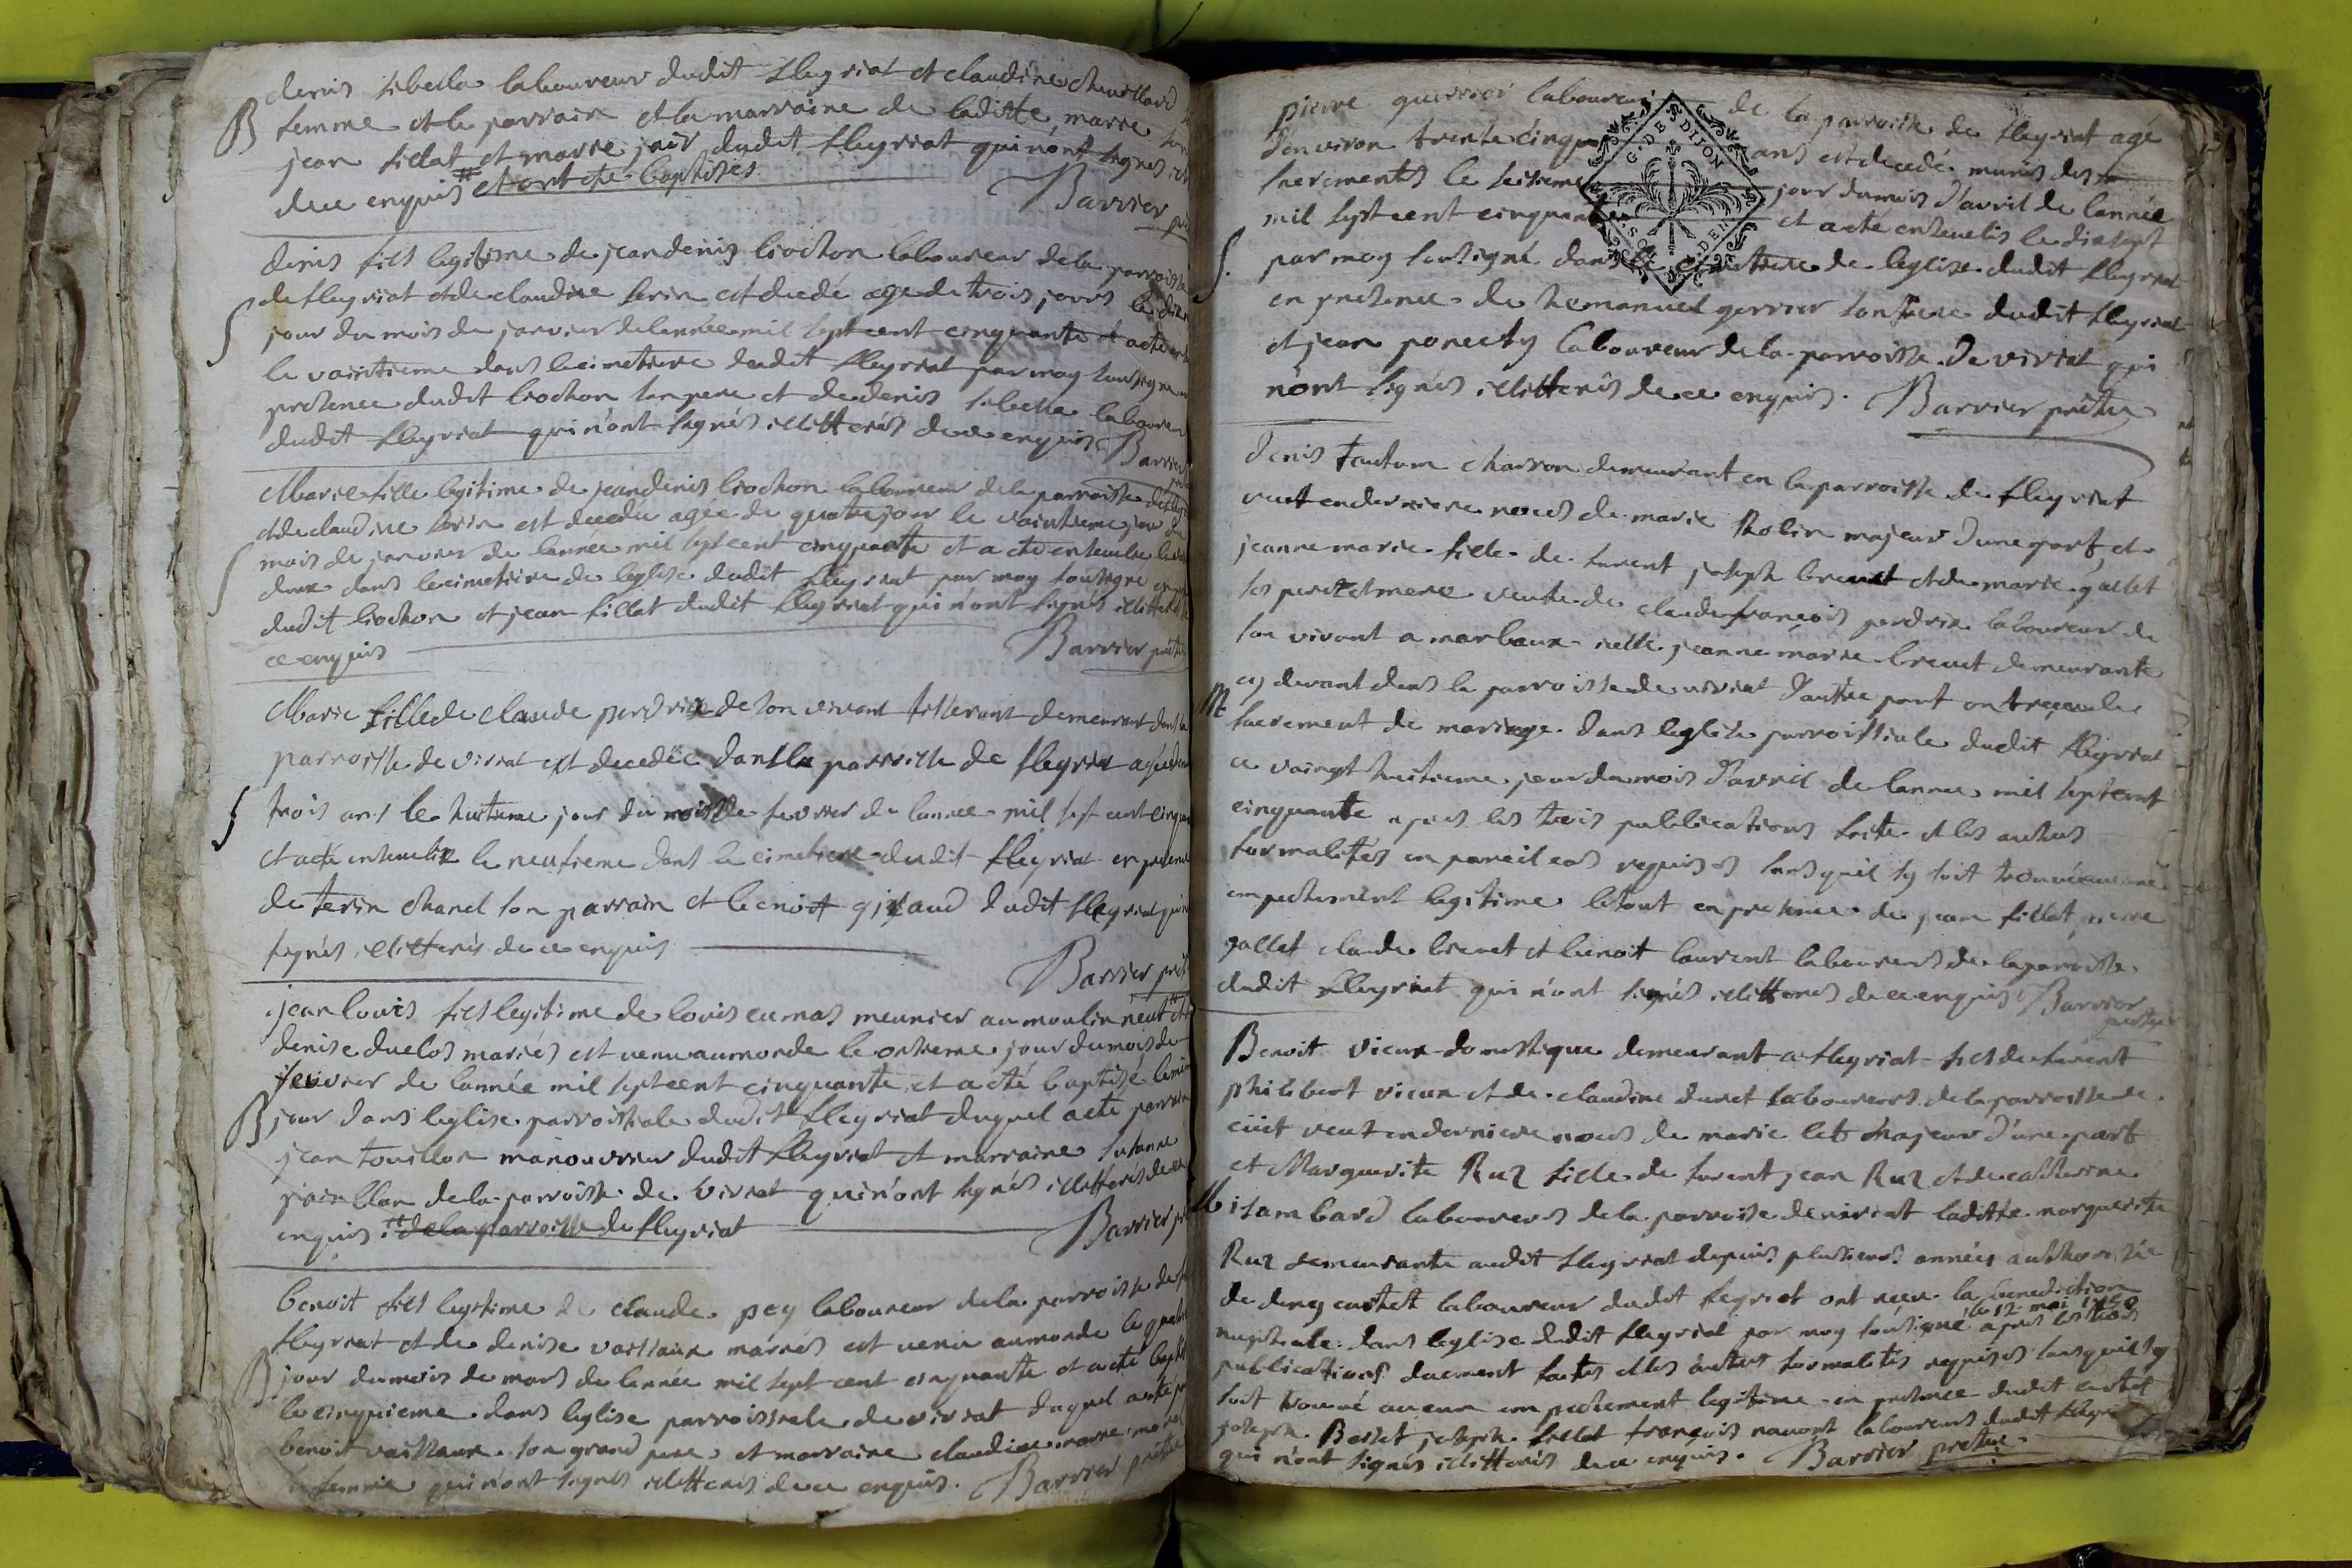 denis sibella laboureur dudit fleyriat et claudine chevillard
B femme et le parrain et la marraine de laditte marie
jean fillat et marie jair dudit fleyriat qui n'ont signés
de ce enquis et ont été baptisés
Barrier
denis fils legitime de jeandenis liochon laboureur de la parroisse
de fleyriat et de claudine serin est decedé agé de trois jours le
S jour du mois de janvier de lannée mil sept cent cinquante et a eté
le vaintieme dans le cimetiere dudit fleyriat par moy soussigné
presence dudit liochon son pere et de denis sibella laboureur
dudit fleyriat qui n'ont signés illitterés de ce enquis Barrier
Marie fille legitime de jeandenis liochon laboureur de la parroisse de
et de claudine serin est decedée agée de quatre jour le vaintieme jour du
S mois de janvier de lannée mil sept cent cinquante et a eté ensevelie le
deux dans le cimetiere de leglise dudit fleyriat par moy soussigné
dudit liochon et jean fillat dudit fleyriat qui n'ont signés
ce enquis Barrier
Marie fille de claude perdrix de son vivant tisserant demeurant dans la
parroisse de viriat est decedée dans la parroisse de fleyriat agée
S trois ans le huitieme jour du mois de fevrier de lannée mil sept cent
et a eté ensevelie le neufieme dans le cimetiere dudit fleyriat en presence
de chanel son parrain et benoit dudit fleyriat
signés illitterés de ce enquis
Barrier
jean louis fils legitime de louis cumas meunier au moulin neuf et
denise duclos mariés est venu au monde le onzieme jour du mois de
fevrier de lannée mil sept cent cinquante et a eté baptisé le
B jour dans leglise parroissiale dudit fleyriat duquel a eté parrain
jean touillon manouvrier dudit fleyriat et marraine susanne
de la parroisse de viriat qui n'ont signés illitterés de ce
enquis. de la parroisse de fleyriat Barrier
benoit fils legitime de claude pey laboureur de la parroisse de
fleyriat et de denise vaissaux mariés est venu au monde le
B jour du mois de mars de lannée mil sept cent cinquante et a eté
le cinquieme dans leglise parroissiale de viriat duquel a eté
benoit vaissaux son grand pere et marraine claudine
femme qui n'ont signés illitterés de ce enquis. Barrier prêtre
pierre guerrier laboureur de la parroisse de fleyriat agé
d'environ trente cinq ans est decedé munis des
sacrements le seizieme jour du mois d'avril de lannée
mil sept cent cinquante et a eté ensevelis le dixsept
S. par moy soussigné dans le cimetiere de leglise dudit fleyriat
en presence de hemanuel gerrier son frere dudit fleyriat
et jean ponecty laboureur de la parroisse de viriat qui
n'ont signés illitterés de ce enquis. Barrier prêtre
G. DE DIJON
SO DEN
denis fautom charron demeurant en la parroisse de fleyriat
veuf en derniere noces de marie Rolin majeur d'une part et
jeanne marie fille de furent joseph brevet et de marie gallet
ses pere et mere veuve de claude françois perdrix laboureur de
son vivant a marbaux icelle jeanne marie brevet demeurante
cy devant dans la parroisse de viriat d'autre part ont reçeu le
M sacrement de mariage dans leglise parroissiale dudit fleyriat
ce vaingt huitieme jour du mois d'avril de lannée mil sept cent
cinquante apres les trois publications faite et les autres
formalités en pareil cas requises sans quil sy soit trouvé aucune
empechement legitime le tout en presence de jean fillat pierre
gallet claude brevet et benoit laurent laboureurs de la parroisse
dudit fleyriat qui n'ont signés illitterés de ce enquis Barrier
prêtre
Benoit vieux domestique demeurant a fleyriat fils de furent
philibert vieux et de claudine duret laboureurs de la parroisse de
veuf en derniere noces de marie majeur d'une part
et Marguerite Ruz fille de furent jean Ruz et de catherine
M isambard laboureurs de la parroisse de viriat laditte marguerite
Ruz demeurante audit fleyriat depuis plusieurs années authorisée
de deny laboureur dudit fleyriat ont reçeu la benediction
le 12 mai 1750
nuptiale dans leglise dudit fleyriat par moy soussigné apres les trois
publications duement faites et les autres formalités requises sans quil sy
soit trouvé aucun empechement legitime en presence dudit
joseph Bosset joseph fillat françois laboureurs dudit
qui n'ont signés illitterés de ce enquis. Barrier prêtre